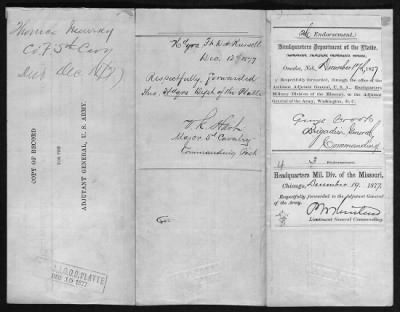 Thomas Murray
Co. F 5th Cavy
Died Dec 10/77
COPY OF RECORD
FOR THE
ADJUTANT GENERAL, U. S. ARMY.
PLATTE
DEC 19 1877
Hdqrs Ft D.A. Russell
Dec. 12th 1877
Respectfully forwarded
thro. Hdqrs Dept of the Platte
Major 5th Cavalry
Commanding Post
Endorsement.
Headquarters Department of the Platte.
Omaha, Neb., December 17th, 1877
Respectfully forwarded, through the office of the
Assistant Adjutant General, U. S. A., Headquarters
Military Division of the Missouri, to the Adjutant
General of the Army, Washington, D. C.
George Crook
Brigadier General
Commanding
3 Endorsement.
Headquarters Mil. Div. of the Missouri,
Chicago, December 19, 1877.
Respectfully forwarded to the Adjutant General
of the Army.
Lieutenant General Commanding.